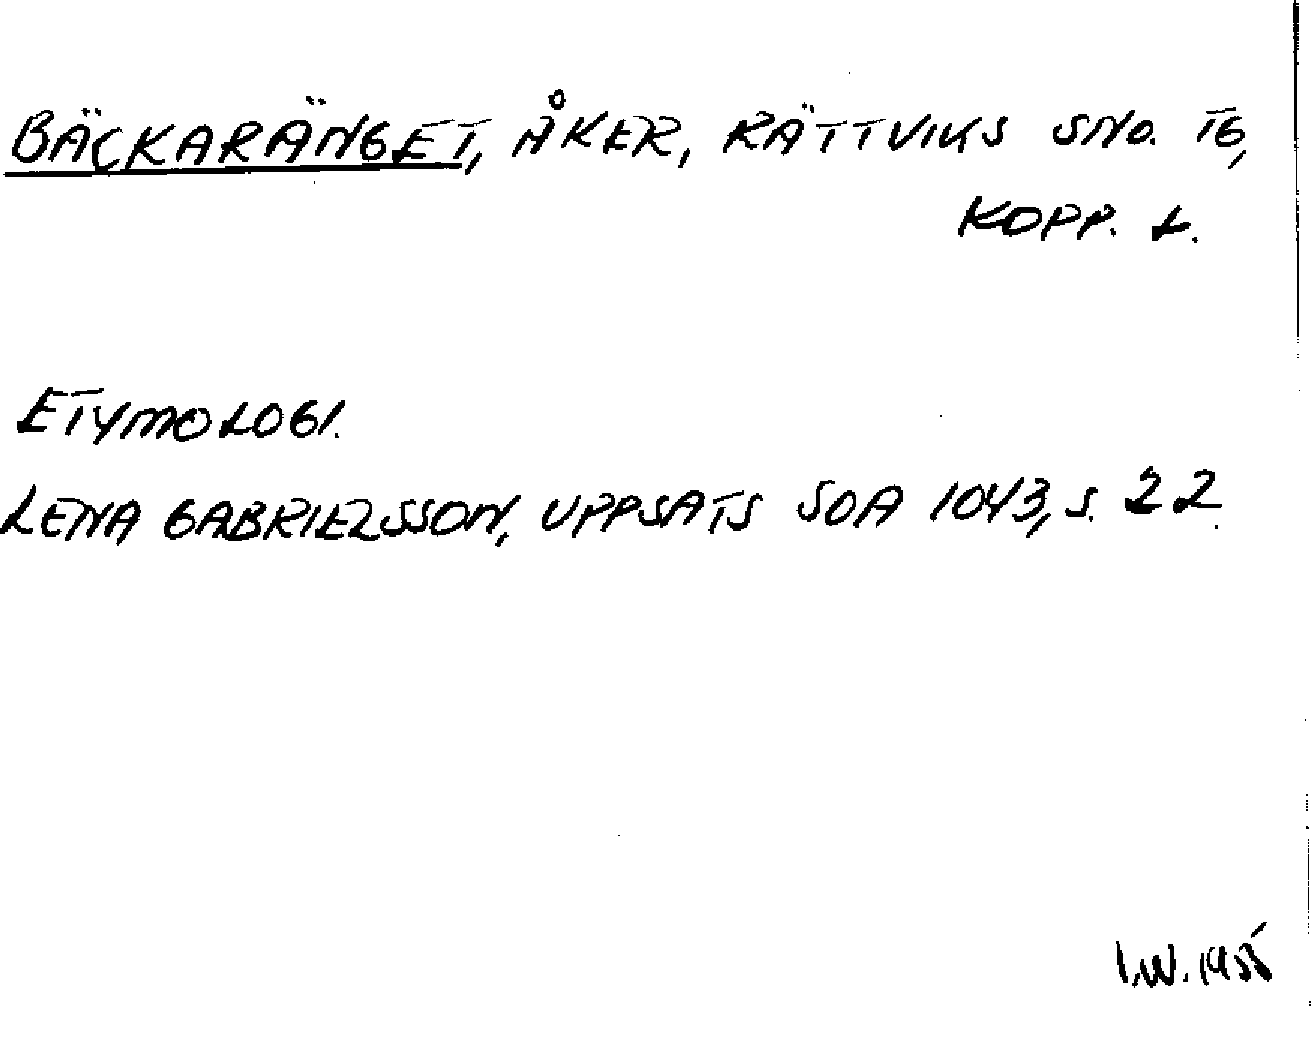 BÄCKARÄNGET, ÅKER, RÄTTVIKS SND. TG,
KOPP. L.
ETYMOLOGI.
LENA GABRIELSSON, UPPSATS SOA 1043, S. 22.
I.W.